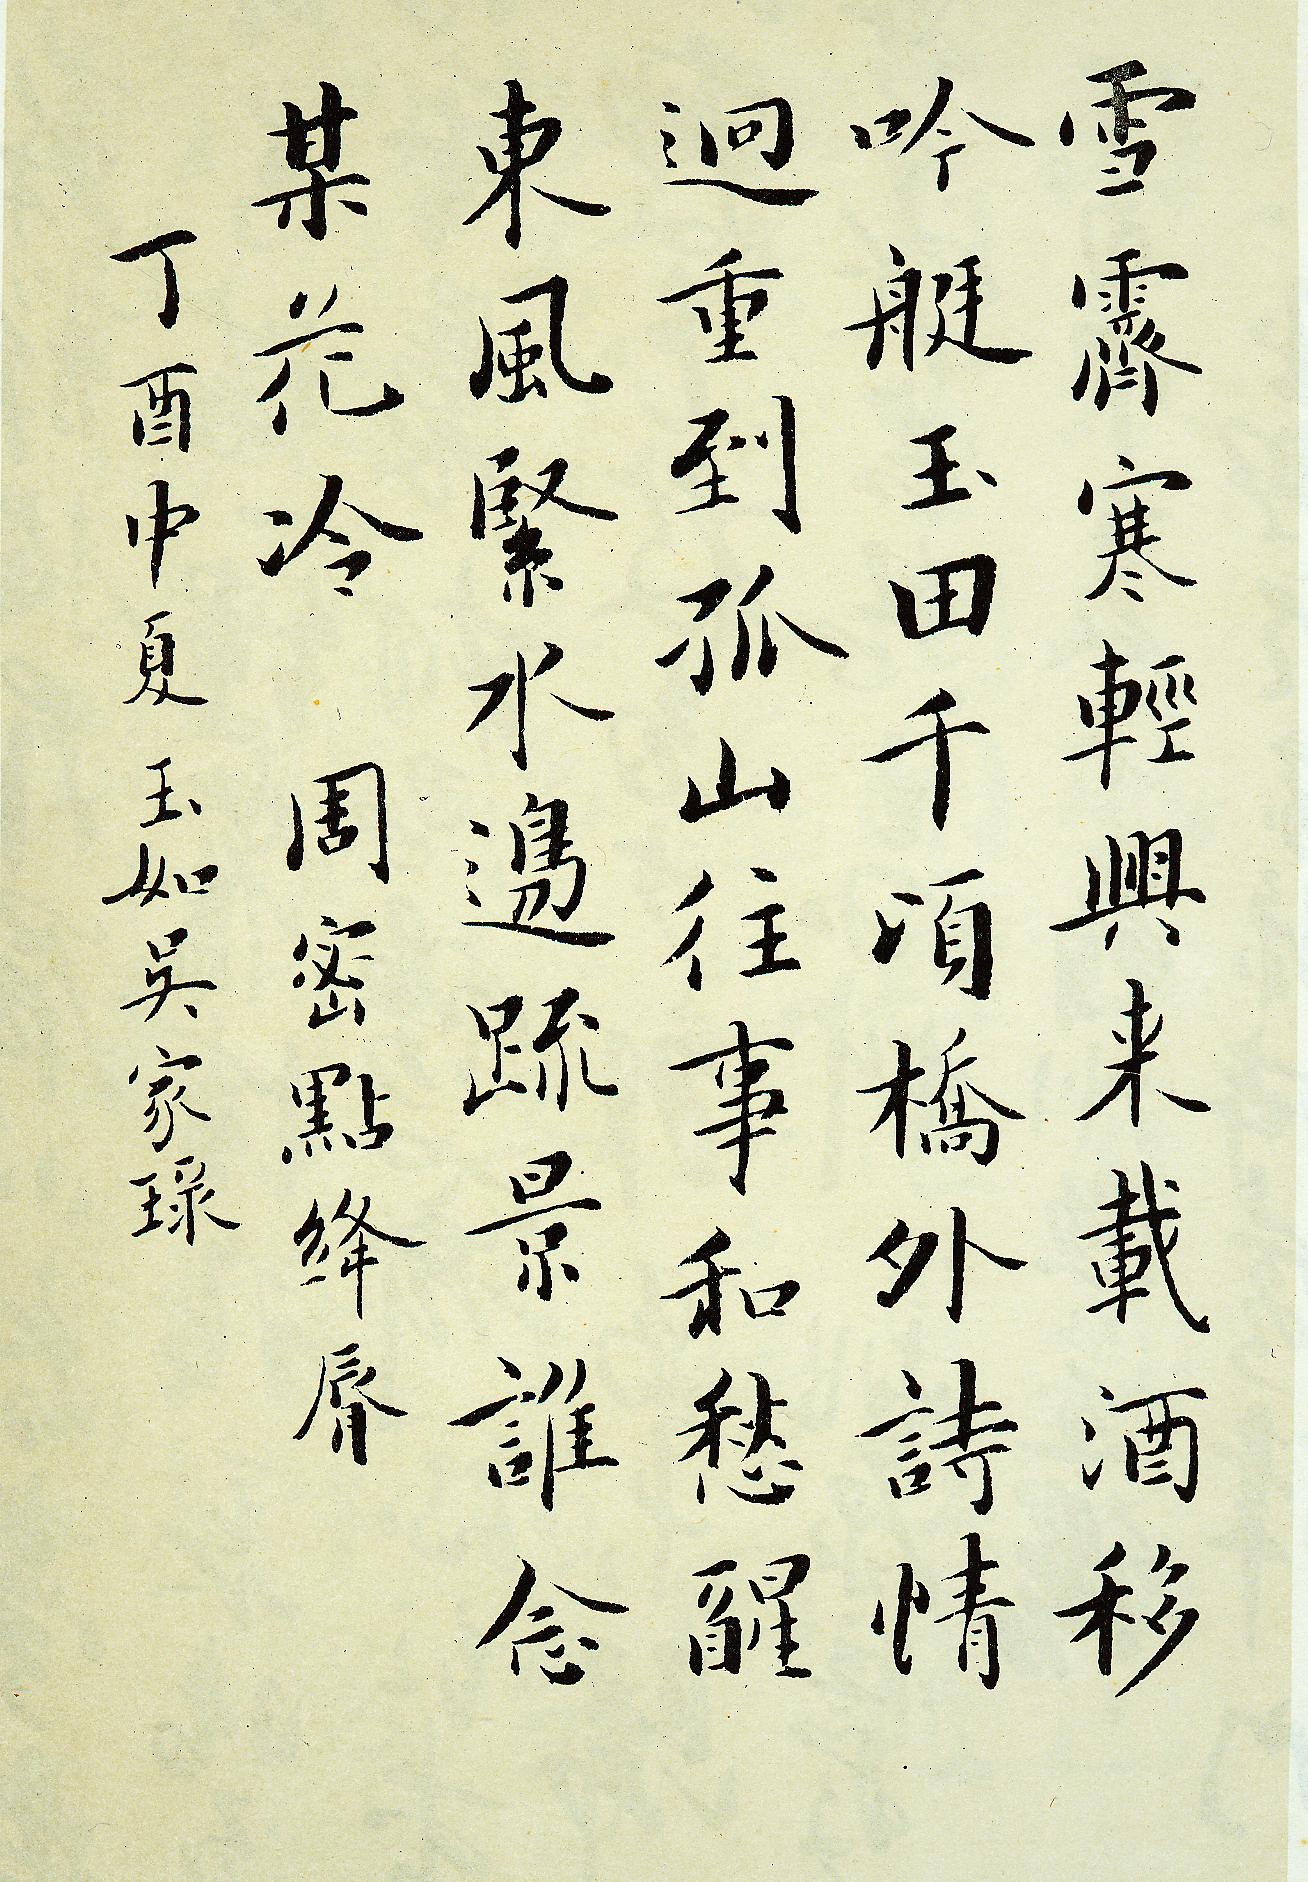 雪霽寒輕興来載酒移
吟艇玉田千頃橋外詩情
迥重到孤山往事和愁醒
東風緊水邊疏景誰念
某花冷 周密點絳脣
丁酉中夏玉如吳家琭